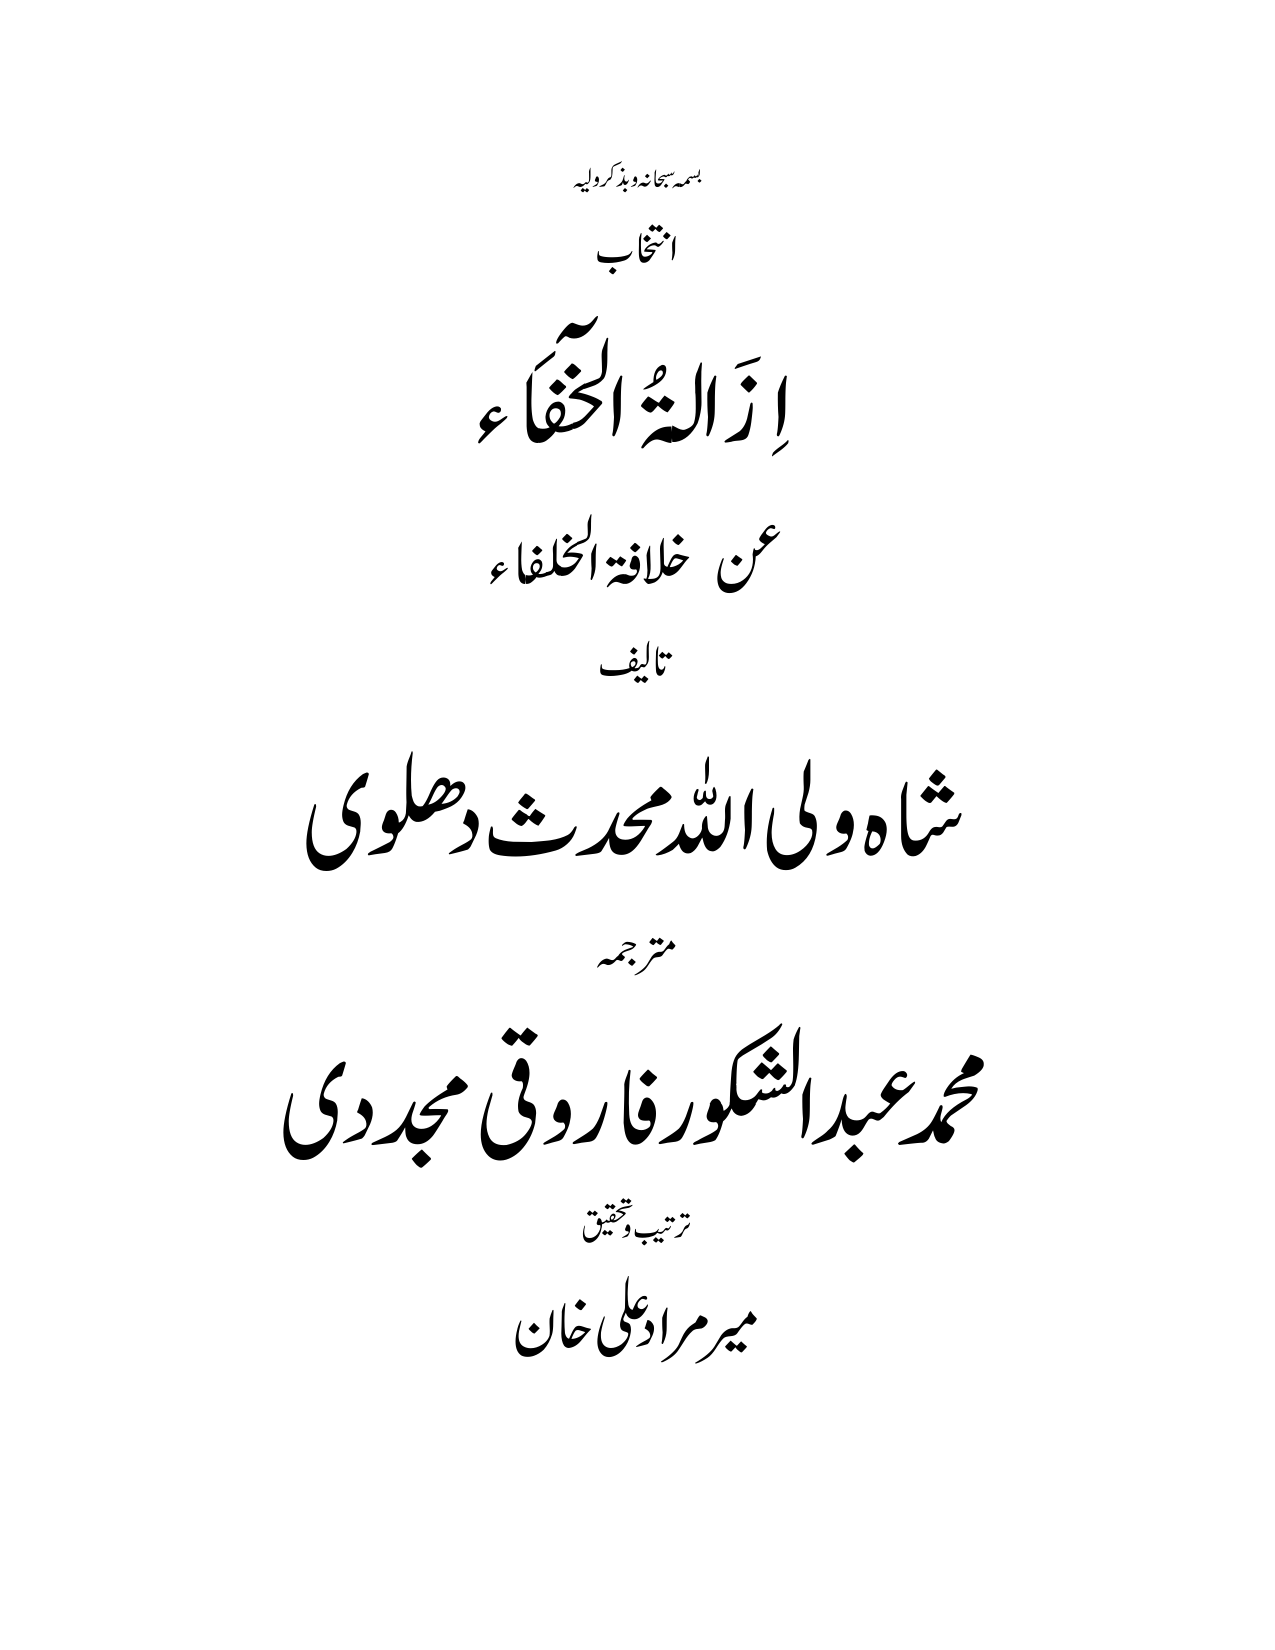 بسمہ سبحانہ وبذکر ولیہ
انتخاب
اِزَالۃُ الخفَآء
عن خلافۃ الخلفاء
تالیف
شاہ ولی اللہ محدث دھلوی
مترجمہ
محمد عبدالشکور فاروقی مجددی
ترتیب و تحقیق
میر مراد علی خان